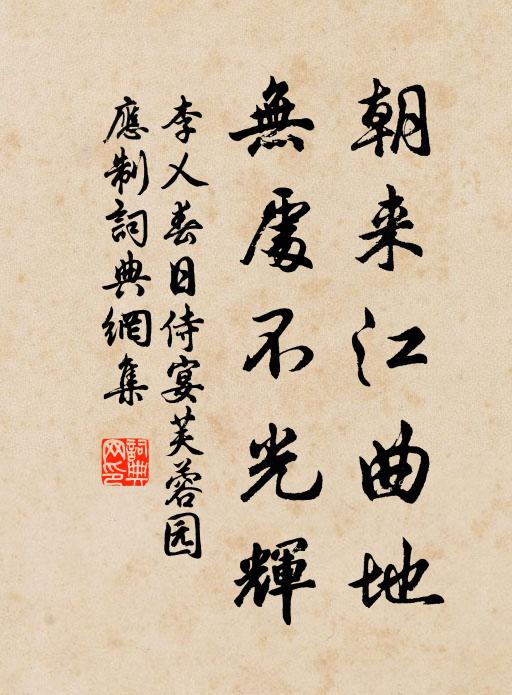 朝来江曲地
無處不光輝
李乂春日侍宴芙蓉园
應制詞典網集
詞典网印